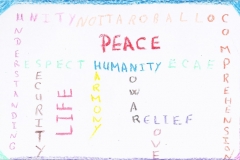 UNITY NOT TAROBALLOC
PEACE
UNDERSTANDING
COMPREHENSION
SPECT HUMANITY ECAE
SECURITY
LIFE
HARMONY
NO WAR
RELIEF
LOVE